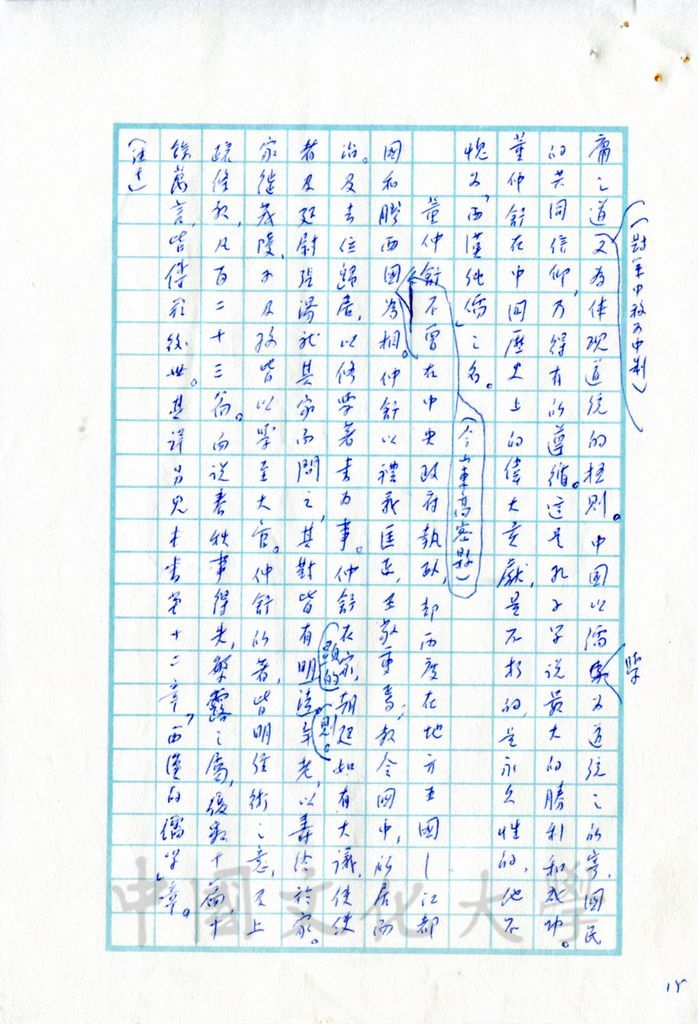 庸之道又為体現道統的極則。中國以儒學為道統之所寄,國民
的共同信仰,乃得有所遵循。這是孔子學說最大的勝利和成功。
董仲舒在中国歷史上的偉大貢獻,是不朽的,是永久性的,他不
愧為「西漢純儒」之名。
董仲舒不曾在中央政府執政,却兩度在地方王國—江都
國和膠西國(今山東高密縣)為相。仲舒以禮義匡正,王敬重焉;教令國中,所居而
治。及去位歸居,以修學著書為事。仲舒在家,朝廷如有大議,使使
者及廷尉張湯就其家而問之,其對皆有明顯的法則。年老,以壽終於家。
家徙茂陵,子及孫皆以學至大官。仲舒所著,皆明經術之意,及上
疏條教,凡百二十三篇。而說春秋事得失,繁露之屬,復數十篇,十
餘萬言,皆傳於後世。其詳另見本書第十二章,「西漢的儒學」章。
(註十)
18
中國文化大學